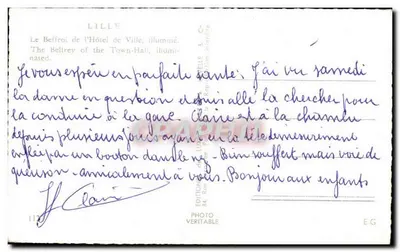 LILLE
Le Beffroi de l'Hôtel de Ville, illuminé.
The Belfrey of the Town-Hall, illuminated.
Je vous espère en parfaite santé. J'ai vu samedi
la dame en question et suis allé la chercher pour
la conduire à la gare. Claire est à la chambre
depuis plusieurs jours ayant la tête démesurément
enflée par un bouton dans le nez. Bien souffert mais voie de
guérison - amicalement à vous. Bonjour aux enfants
Clair
PHOTO
VERITABLE
E-G